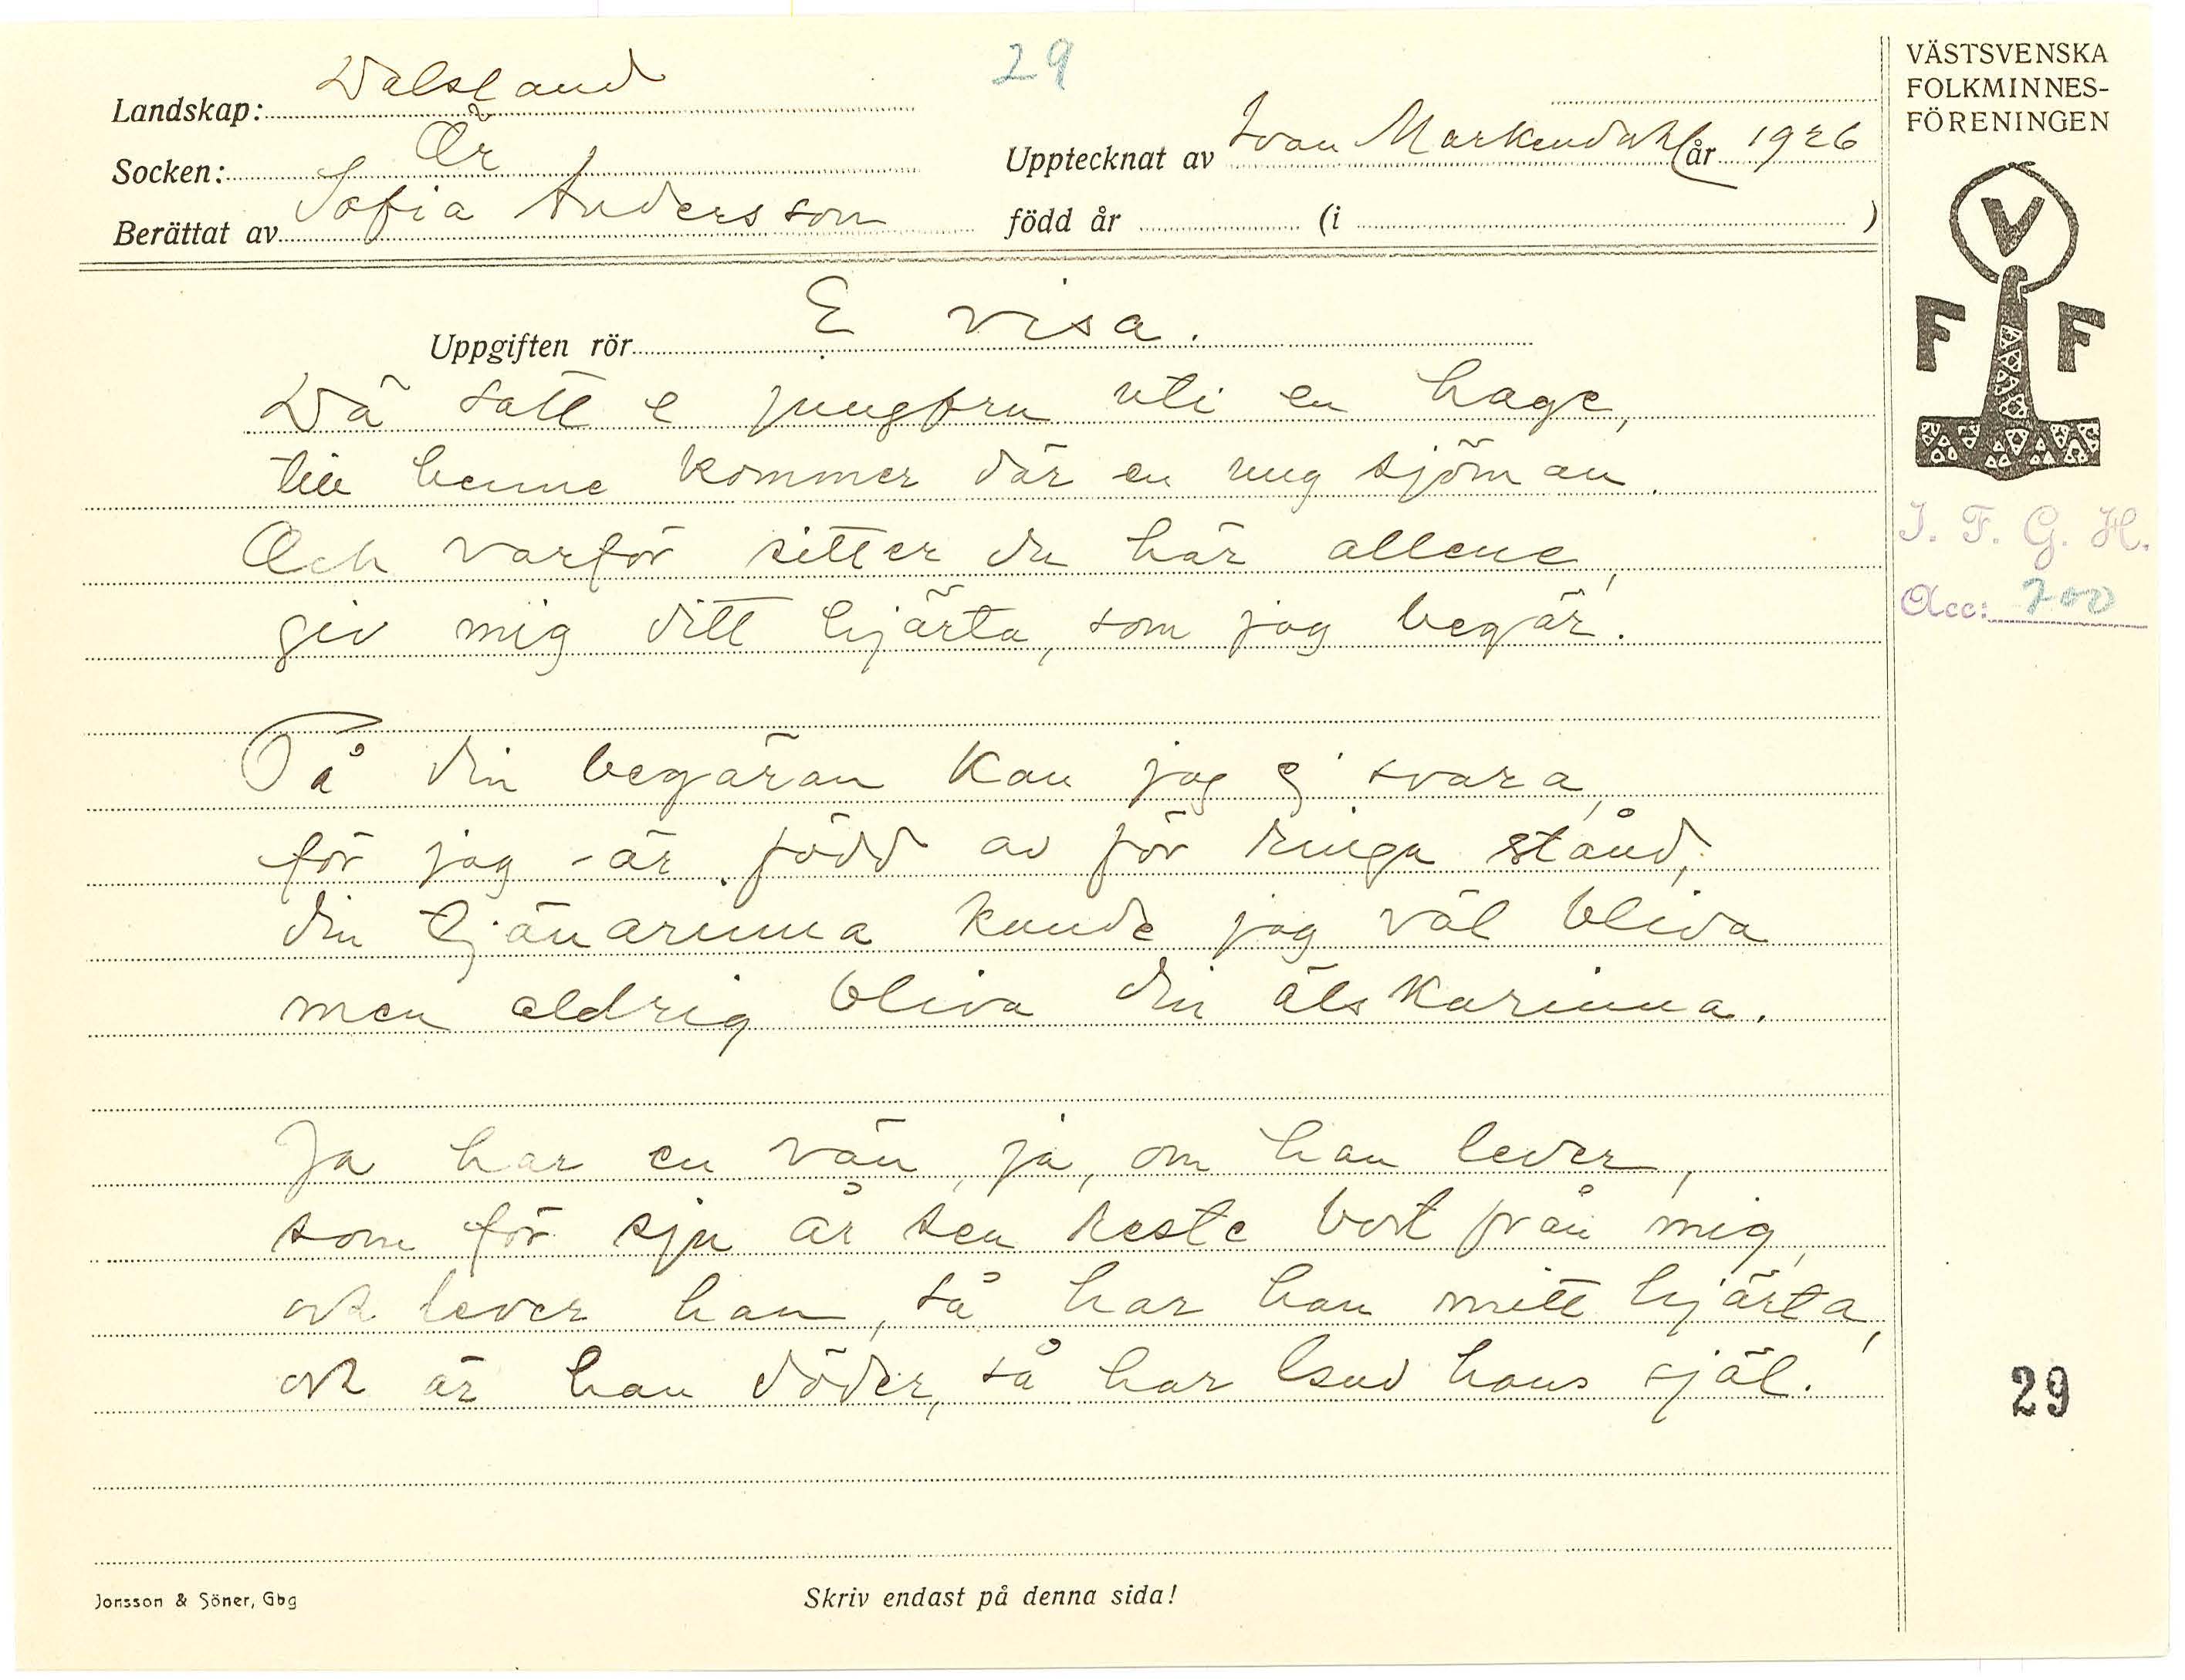 29
VÄSTSVENSKA
FOLKMINNES-
FÖRENINGEN
Landskap: Dalsland
Socken: Ör
Upptecknat av Ivan Markendahl år 1926
Berättat av Sofia Andersson född år (i )
V
F F
Uppgiften rör E visa.
I. F. G. H.
Acc: 200
Dä satt e jungfru uti en hage,
till henne kommer där en ung sjöman.
Och varför sitter du här allene,
giv mig ditt hjärta, som jag begär.
På din begäran kan jag ej svara,
för jag är född av för ringa stånd,
din tjänarinna kunde jag väl bliva
men aldrig bliva din älskarinna.
Ja har en vän, ja, om han lever,
som för sju år sen reste bort från mig,
och lever han, så har han mitt hjärta,
och är han döder, så har Gud hans själ.
29
Jonsson & Söner, Gbg
Skriv endast på denna sida!